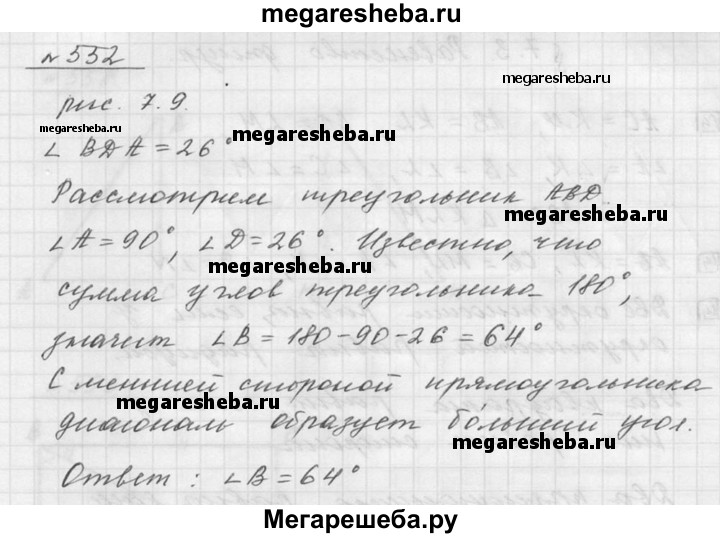 megaresheba.ru
№ 552
megaresheba.ru
рис. 7.9.
megaresheba.ru
∠ BDA = 26° megaresheba.ru
Рассмотрим треугольник ABD.
megaresheba.ru
∠A = 90°, ∠D = 26°. Известно, что
megaresheba.ru
сумма углов треугольника 180°,
значит ∠B = 180-90-26 = 64°
С меншей стороной прямоугольника
megaresheba.ru
диагональ образует больший угол.
megaresheba.ru
Ответ : ∠B = 64°
Мегарешеба.ру